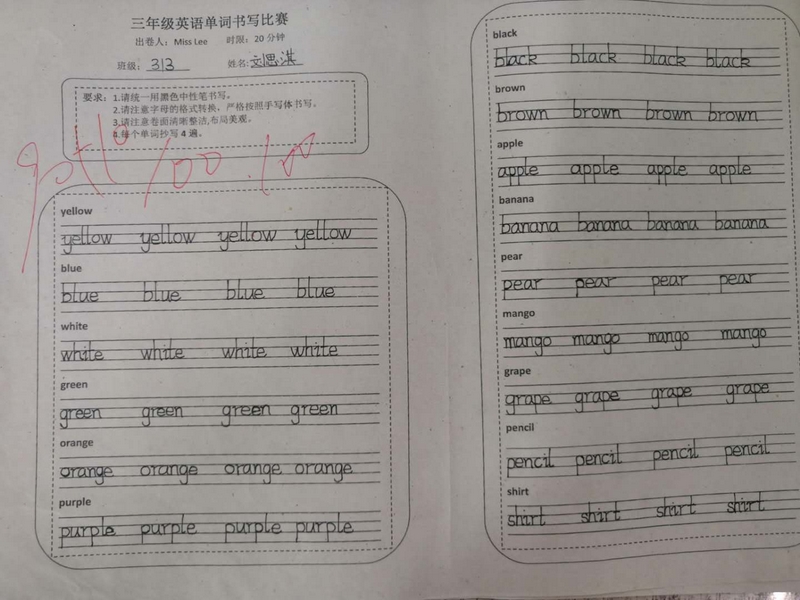 三年级英语单词书写比赛
出卷人：Miss Lee 时限：20 分钟
班级：313 姓名:文思淇
要求：1.请统一用黑色中性笔书写。
2.请注意字母的格式转换，严格按照手写体书写。
3.请注意卷面清晰整洁,布局美观。
4.每个单词抄写 4 遍。
100
yellow
yellow yellow yellow yellow
blue
blue blue blue blue
white
white white white white
green
green green green green
orange
orange orange orange orange
purple
purple purple purple purple
black
black black black black
brown
brown brown brown brown
apple
apple apple apple apple
banana
banana banana banana banana
pear
pear pear pear pear
mango
mango mango mango mango
grape
grape grape grape grape
pencil
pencil pencil pencil pencil
shirt
shirt shirt shirt shirt